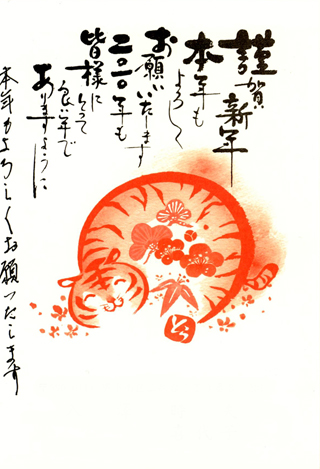 謹賀新年
本年も
よろしく
お願いいたします
二〇一〇年も
皆様に
とって
良い年で
ありますように
本年もよろしくお願いいたします